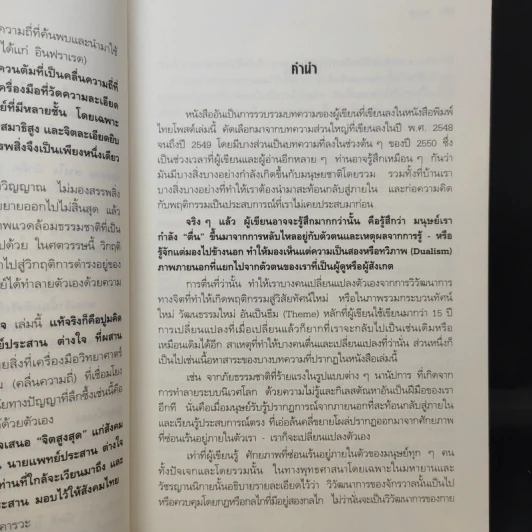 ความถี่ที่ค้นพบและนำมาใช้
ได้แก่ อินฟราเรด)
ควอนตัมที่เป็นคลื่นความถี่ที่
เครื่องมือที่วัดความละเอียด
ย์ที่มีหลายชั้น โดยเฉพาะ
สมาธิสูง และจิตละเอียดยิบ
รพสิ่งจึงเป็นเพียงหนึ่งเดียว
วิญญาณ ไม่มองสรรพสิ่ง
ขยายออกไปไม่สิ้นสุด แล้ว
าพแวดล้อมธรรมชาติที่เป็น
ปด้วย ในศตวรรษนี้ วิกฤติ
าไปสู่วิกฤติการดำรงอยู่ของ
ย์ได้ทำลายตัวเองด้วยความ
ใจ เล่มนี้ แท้จริงก็คือปูมคิด
ย์ประสาน ต่างใจ ที่ผสาน
ายสิ่งที่เครื่องมือวิทยาศาตร์
น (คลื่นความถี่) ที่เชื่อมโยง
นัยทางปัญญาที่ลึกซึ้งเช่นนี้คือ
ด้วยตัวเอง
จเสนอ "จิตสูงสุด" แก่สังคม
น นายแพทย์ประสาน ต่างใจ
ท่านที่ใกล้จะเวียนมาถึง และ
ระสาน มอบไว้ให้สังคมไทย
คารวะ
คำนำ
หนังสืออันเป็นการรวบรวมบทความของผู้เขียนที่เขียนลงในหนังสือพิมพ์
ไทยโพสต์เล่มนี้ คัดเลือกมาจากบทความส่วนใหญ่ที่เขียนลงในปี พ.ศ. 2548
จนถึงปี 2549 โดยมีบางส่วนเป็นบทความที่ลงในช่วงต้น ๆ ของปี 2550 ซึ่ง
เป็นช่วงเวลาที่ผู้เขียนและผู้อ่านอีกหลาย ๆ ท่านอาจรู้สึกเหมือน ๆ กันว่า
มันมีบางสิ่งบางอย่างกำลังเกิดขึ้นกับมนุษยชาติโดยรวม รวมทั้งที่บ้านเรา
บางสิ่งบางอย่างที่ทำให้เราต้องนำมาสะท้อนกลับสู่ภายใน และก่อความคิด
กับพฤติกรรมเป็นประสบการณ์ที่เราไม่เคยประสบมาก่อน
จริง ๆ แล้ว ผู้เขียนอาจจะรู้สึกมากกว่านั้น คือรู้สึกว่า มนุษย์เรา
กำลัง "ตื่น" ขึ้นมาจากการหลับใหลอยู่กับตัวตนและเหตุผลจากการรู้ - หรือ
รู้จักแต่มองไปข้างนอก ทำให้มองเห็นแต่ความเป็นสองหรือทวิภาพ (Dualism)
ภาพภายนอกที่แยกไปจากตัวตนของเราที่เป็นผู้ดูหรือผู้สังเกต
การตื่นที่ว่านั้น ทำให้เราบางคนเปลี่ยนแปลงตัวเองจากการวิวัฒนาการ
ทางจิตที่ทำให้เกิดพฤติกรรมสู่วิสัยทัศน์ใหม่ หรือในภาพรวมกระบวนทัศน์
ใหม่ วัฒนธรรมใหม่ อันเป็นธีม (Theme) หลักที่ผู้เขียนใช้เขียนมากว่า 15 ปี
การเปลี่ยนแปลงที่เมื่อเปลี่ยนแล้วก็ยากที่เราจะกลับไปเป็นเช่นเดิมหรือ
เหมือนเดิมได้อีก สาเหตุที่ทำให้บางคนตื่นและเปลี่ยนแปลงที่ว่านั้น ส่วนหนึ่งก็
เป็นไปเช่นเนื้อหาสาระของบางบทความที่ปรากฏในหนังสือเล่มนี้
เช่น จากภัยธรรมชาติที่ร้ายแรงในรูปแบบต่าง ๆ นานัปการ ที่เกิดจาก
การทำลายระบบนิเวศโลก ด้วยความไม่รู้และกิเลสตัณหาอันเป็นฝีมือของเรา
อีกที นั่นคือเมื่อมนุษย์รับรู้ปรากฏการณ์จากภายนอกที่สะท้อนกลับสู่ภายใน
และเรียนรู้ประสบการณ์ตรง ที่เอ่อล้นคลี่ขยายโผล่ปรากฏออกมาจากศักยภาพ
ที่ซ่อนเร้นอยู่ภายในตัวเรา - เราก็จะเปลี่ยนแปลงตัวเอง
เท่าที่ผู้เขียนรู้ ศักยภาพที่ซ่อนเร้นอยู่ภายในตัวของมนุษย์ทุก ๆ คน
ทั้งปัจเจกและโดยรวมนั้น ในทางพุทธศาสนาโดยเฉพาะในมหายานและ
วัชรญานนิกายนั้นอธิบายรายละเอียดไว้ว่า วิวัฒนาการของจักรวาลนั้นเป็นไป
หรือควบคุมโดยกฎหรือกลไกที่มีอยู่สองกลไก ไม่ว่านั่นจะเป็นวิวัฒนาการของกาย